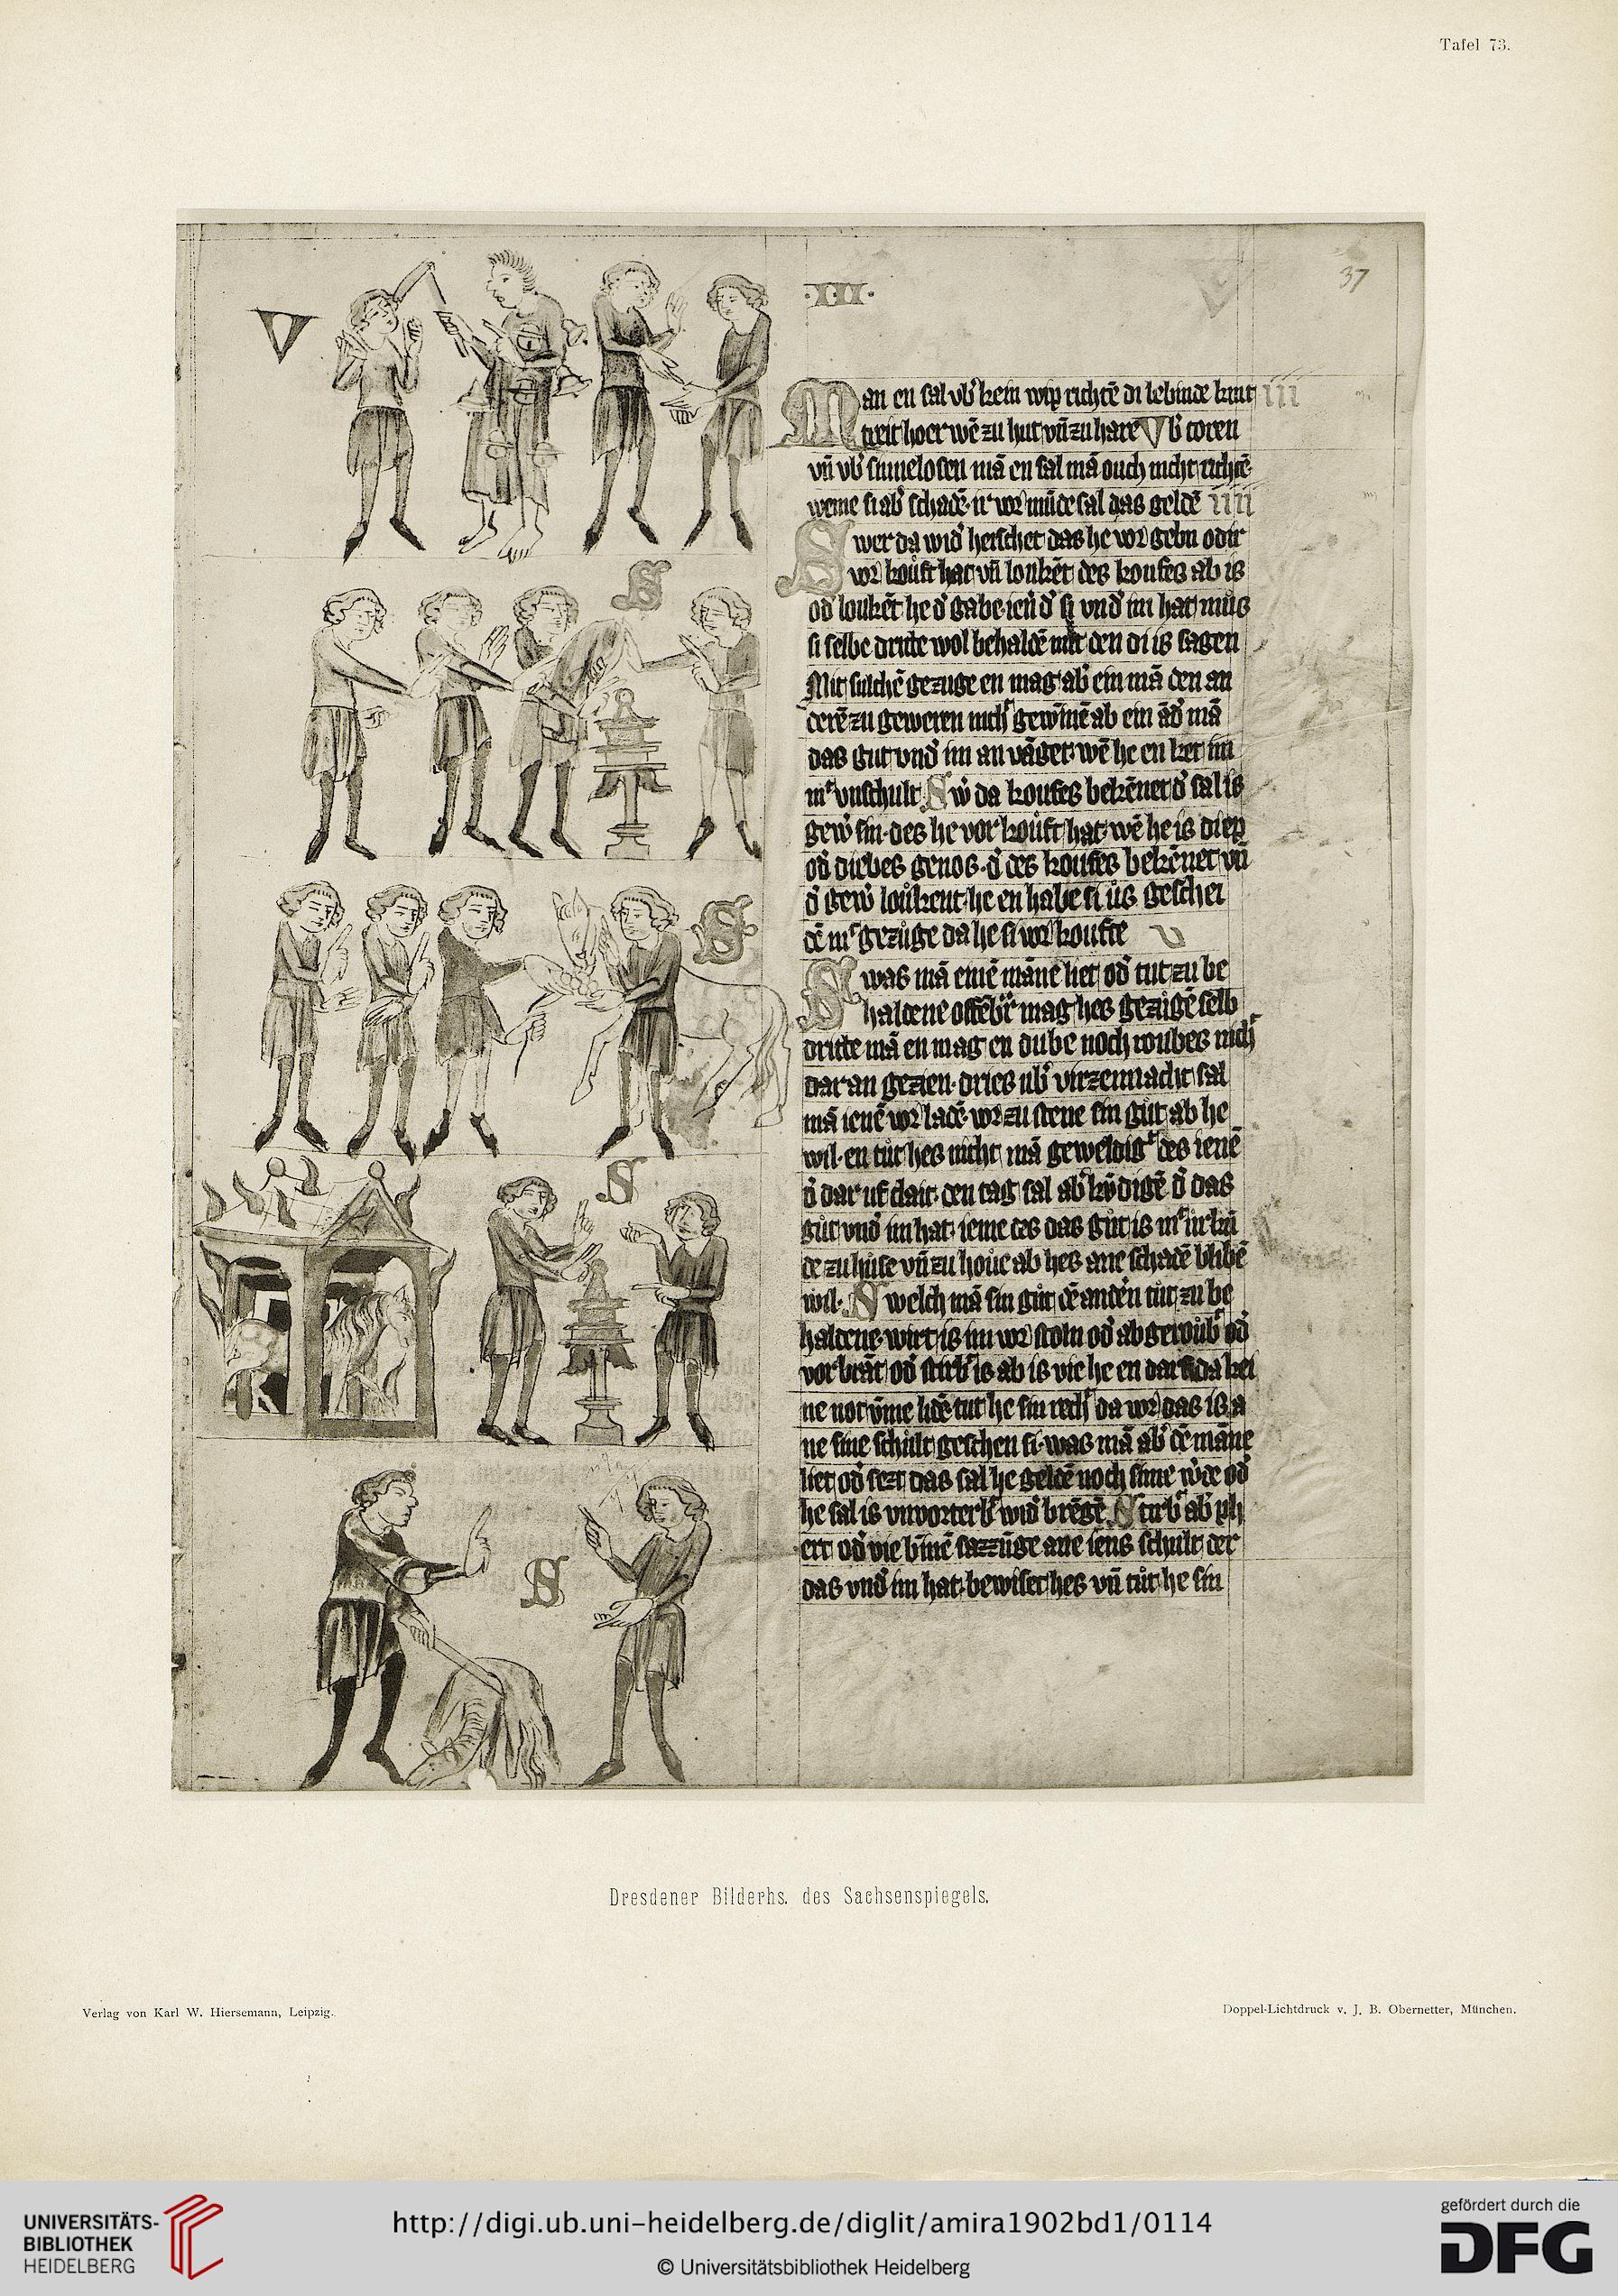 Tafel 73.
37
·III·
V
Man en sal vb' kein wip richtē di lebinde kint III
treit hoer wē zu hut vn̄ zu hare Vb' toren
vn̄ vb' sinnelosen mā en sal mā ouch nicht richtē
weme si ab' schadē ir vor mūde sal das geldē IIII
Swer da wid' heischet das he vor gebn odir
vor kouft hat vn̄ loukēt des koufes ab is
od' loukēt he d' gabe ien̄ d' si vnd' im hat mus
si selbe dritte wol behaldē mit den di is sagen
Mit sulchē gezuge en mag ab' ein mā den an
derē zu geweren nich gewinē ab ein ād' mā
das gut vnd' im an vāget wē he en ket im
mt' vnschult Sw' da koufes bekēnet d' sal is
gew' sin des he vor kouft hat wē he is diep
od' diebes genos d' des koufes bekēnet vn̄
d' gew' loukent he en habe si us geschei
dē mt' gezuge da he si vor koufte V
Swas mā einē māne liet od' tut zu be
haldene offēb'r mag hes gezugē selb
dritte mā en mag en dube noch roubes nich
dar an gezien dries ub' virzennacht sal
mā ienē vor ladē vor zu stene sin gut ab he
wil en tut hes nicht mā geweldigt des ienē
d' dar uf clait den tag sal ab' kūdigē d' das
gut vnd' im hat ieme des das gut is mt' urkū
de zu huse vn̄ zu houe ab hes ane schadē blibē
wil Swelch mā sin gut dē andn tut zu be
haldene wirt is im vor stoln od' ab geroub' od'
vorbrāt od' stirb' is ab is vie he en darf da kei
ne not vme lidē tut he sin rech da vor das is a
ne sine schult geschen si was mā ab' dē māne
liet od' sezt das sal he geldē noch sime w'de od'
he sal is vnvorterb' wid' brēgē Stirb' ab' ph
ert od' vie binnē sazzūge ane iens schult der
das vnd' im hat bewiset hes vn̄ tut he sin
S
S
S
S
Dresdener Bilderhs. des Sachsenspiegels.
Verlag von Karl W. Hiersemann, Leipzig.
Doppel-Lichtdruck v. J. B. Obernetter, München.
UNIVERSITÄTS-
BIBLIOTHEK
HEIDELBERG
http://digi.ub.uni-heidelberg.de/diglit/amira1902bd1/0114
© Universitätsbibliothek Heidelberg
gefördert durch die
DFG